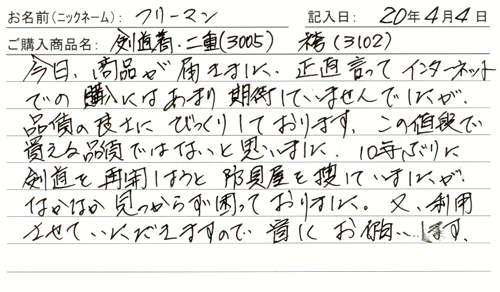 お名前(ニックネーム): フリーマン 記入日: 20年4月4日
ご購入商品名: 剣道着・二重(3005) 袴(3102)
今日、商品が届きました、正直言ってインターネット
での購入にはあまり期待していませんでしたが、
品質の良さにびっくりしております。この値段で
買える品質ではないと思いました、10年ぶりに
剣道を再開しようと防具屋を捜していましたが
なかなか見つからず困っておりました。又、利用
させていただきますので宜しくお願いします、